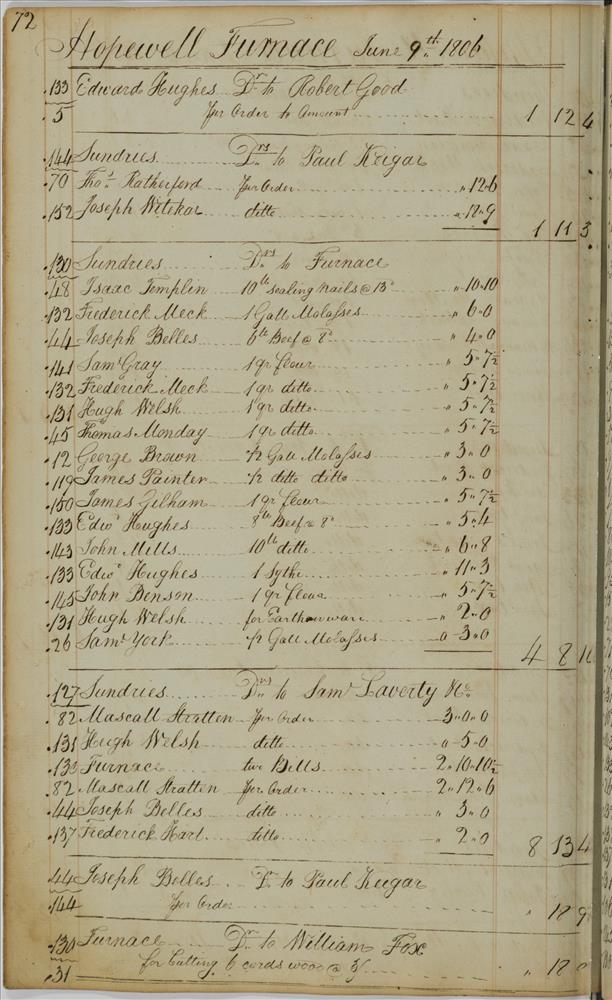 72
Hopewell Furnace June 9th 1806
133 Edward Hughes Dr to Robert Good
5 per Order to Amount 1 12 4
144 Sundries Drs to Paul Keigar
70 Thos Ratherford per Order " 12 " 6
152 Joseph Witekar ditto " 18 " 9
1 11 3
130 Sundries Drs to Furnace
48 Isaac Templin 10lb sealing nails @ 13d " 10 " 10
132 Frederick Meck 1 Gall Molasses " 6 " 0
44 Joseph Belles 6lb Beef @ 8d " 4 " 0
141 Saml Gray 1 qr flour " 5 " 7½
132 Frederick Meck 1 qr ditto " 5 " 7½
131 Hugh Welsh 1 qr ditto " 5 " 7½
45 Thomas Monday 1 qr ditto " 5 " 7½
12 George Brown ½ Gall Molasses " 3 " 0
119 James Painter ½ ditto ditto " 3 " 0
150 James Gilham 1 qr flour " 5 " 7½
133 Edwd Hughes 8lb Beef @ 8d " 5 " 4
143 John Mills 10lb ditto " 6 " 8
133 Edwd Hughes 1 Sythe " 11 " 3
145 John Benson 1 qr flour " 5 " 7½
131 Hugh Welsh for Earthenware " 2 " 0
26 Saml York ½ Gall Molasses 0 " 3 " 0
4 8
127 Sundries Drs to Saml Laverty &c
82 Mascall Stratten per Order 3 " 0 " 0
131 Hugh Welsh ditto 0 " 5 " 0
130 Furnace two Bills 2 " 10 " 10½
82 Mascall Stratten per Order 2 " 12 " 6
44 Joseph Belles ditto " 3 " 0
137 Frederick Hart ditto " 2 " 0
8 13 4
44 Joseph Belles Dr to Paul Keigar
144 per Order " 18 9
130 Furnace Dr to William Fox
31 for Cutting 6 cords wood @ 3/ " 18 0